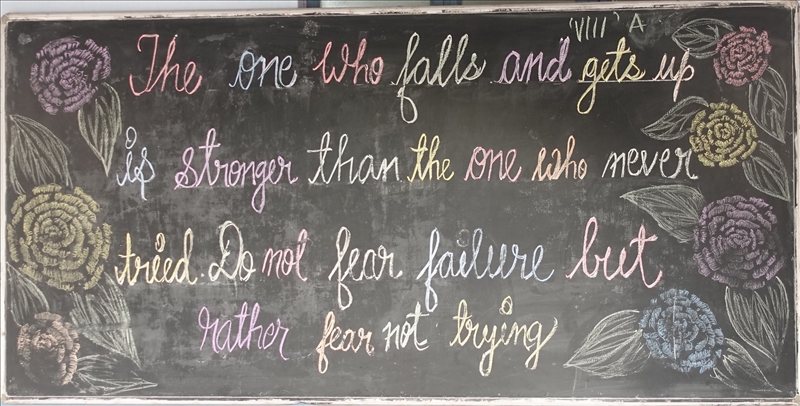 'VIII' A
The one who falls and gets up
is stronger than the one who never
tried. Do not fear failure but
rather fear not trying